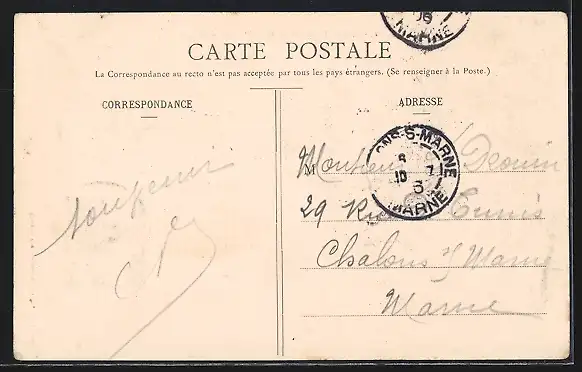 06
MARNE
CARTE POSTALE
La Correspondance au recto n'est pas acceptée par tous les pays étrangers. (Se renseigner à la Poste.)
CORRESPONDANCE
ADRESSE
ONS-S-MARNE
MARNE
M
Monsieur
29 Rue
Chalons s/ Marne
Marne
Souvenir